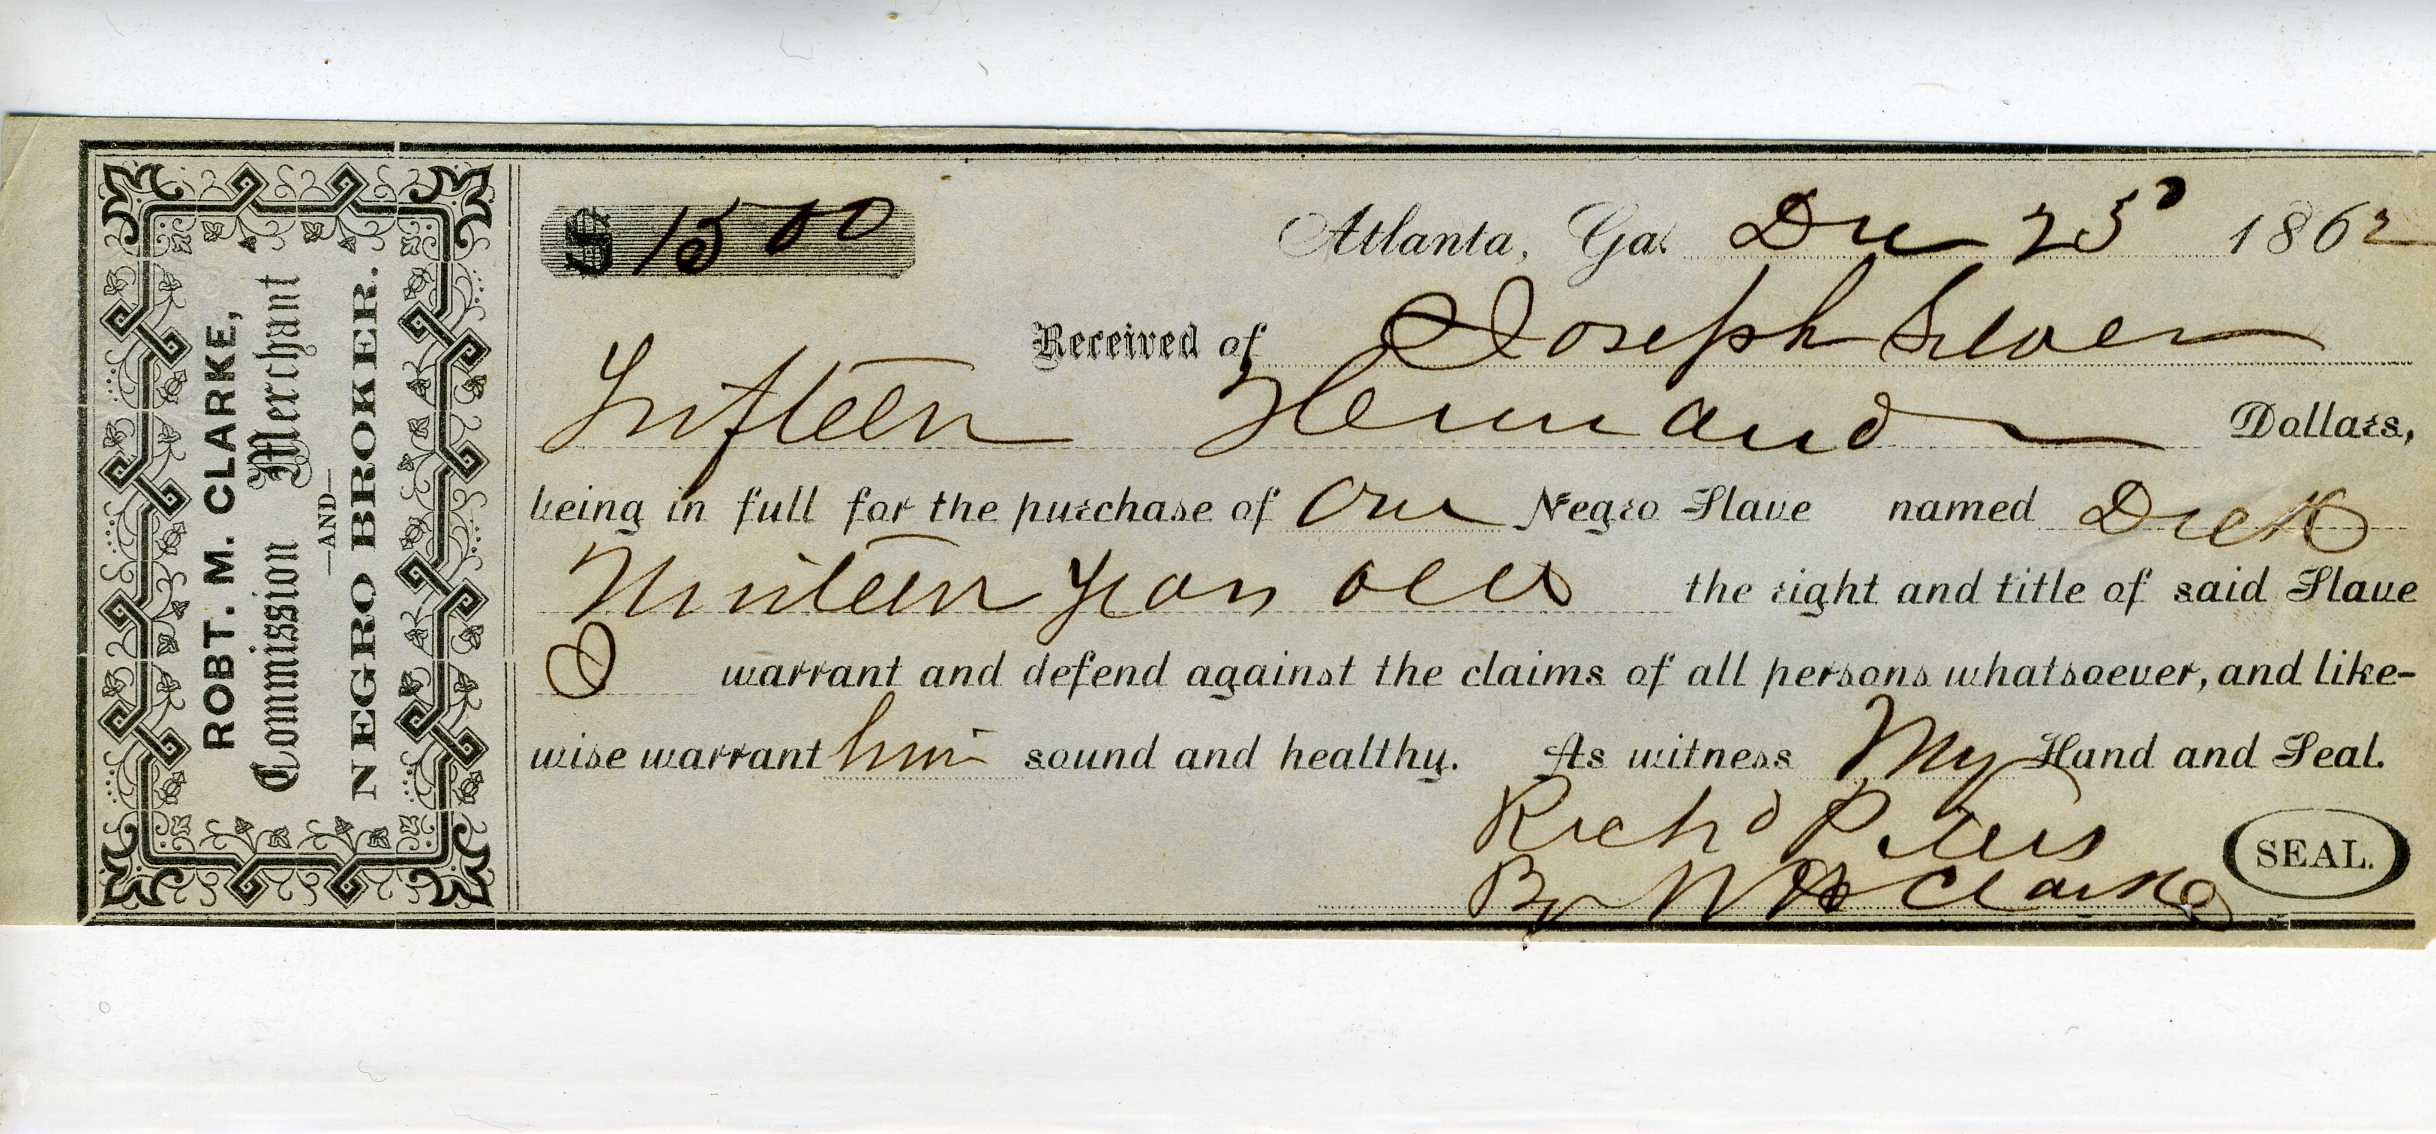 ROBT. M. CLARKE,
Commission Merchant
—AND—
NEGRO BROKER.
$ 1500
Atlanta, Ga. Dec 25 1862
Received of Joseph Silver
Fifteen Hundred Dollars,
being in full for the purchase of One Negro Slave named Dick
Nineteen years old the right and title of said Slave
I warrant and defend against the claims of all persons whatsoever, and like-
wise warrant him sound and healthy. As witness My Hand and Seal.
Richd Peters
By W H Clarke
SEAL.